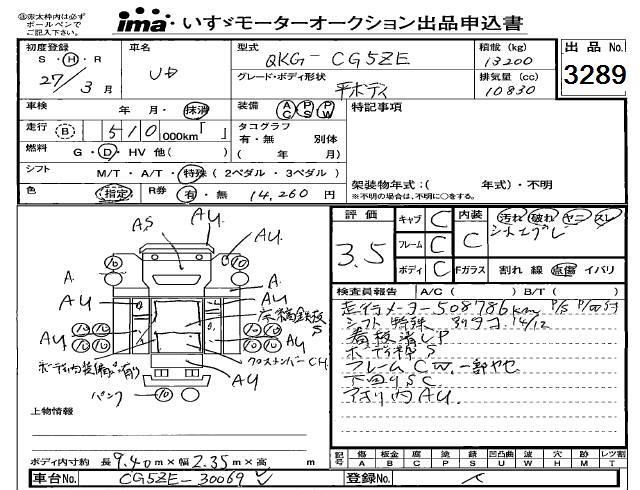 ※太枠内は必ず
ボールペンで
ご記入下さい。
ima いすゞモーターオークション出品申込書
初度登録 車名 型式 積載 (kg) 出品No.
S・H・R QKG-CG5ZE 13200
27/3月 UD グレード・ボディ形状 排気量 (cc) 3289
平ボディ 10830
車検 年 月・抹消 装備 AC PS PW 特記事項
走行 B 510,000km「 」 タコグラフ
有・無 別体
燃料 G・D・HV 他( ) ( 年 月)
シフト M/T・A/T・特殊 (2ペダル・3ペダル)
架装物年式:( 年式)・不明
色 指定 R券 有・無 14,260円 ※不明の場合は、不明に○をする。
評価 キャブ C 内装 汚れ 破れ ヤニ スレ
3.5 フレーム C C
ボディ C Fガラス 割れ 線 点傷 イバリ
AU
AS AU.
10 10
A. A
AU AU
床 縞鉄板
S
10 10 10 10
10 10 10 10
AU AU
クロスメンバーCH
AU
パンク 10
検査員報告 A/C ( ) B/T ( )
走行メーター508786km P/S
シフト特殊
看板消しP
ボデー枠S
フレームCW.一部ヤセ
下回りSC
アオリ内AU.
上物情報
ボディ内寸約 長 9.40m×幅 2.35m×高 m
記号 傷 板金 腐 塗 錆 凹凸曲 波 穴 割 跡 レツ割
A B C P S U W H X M T
車台No. CG5ZE-30069 登録No.